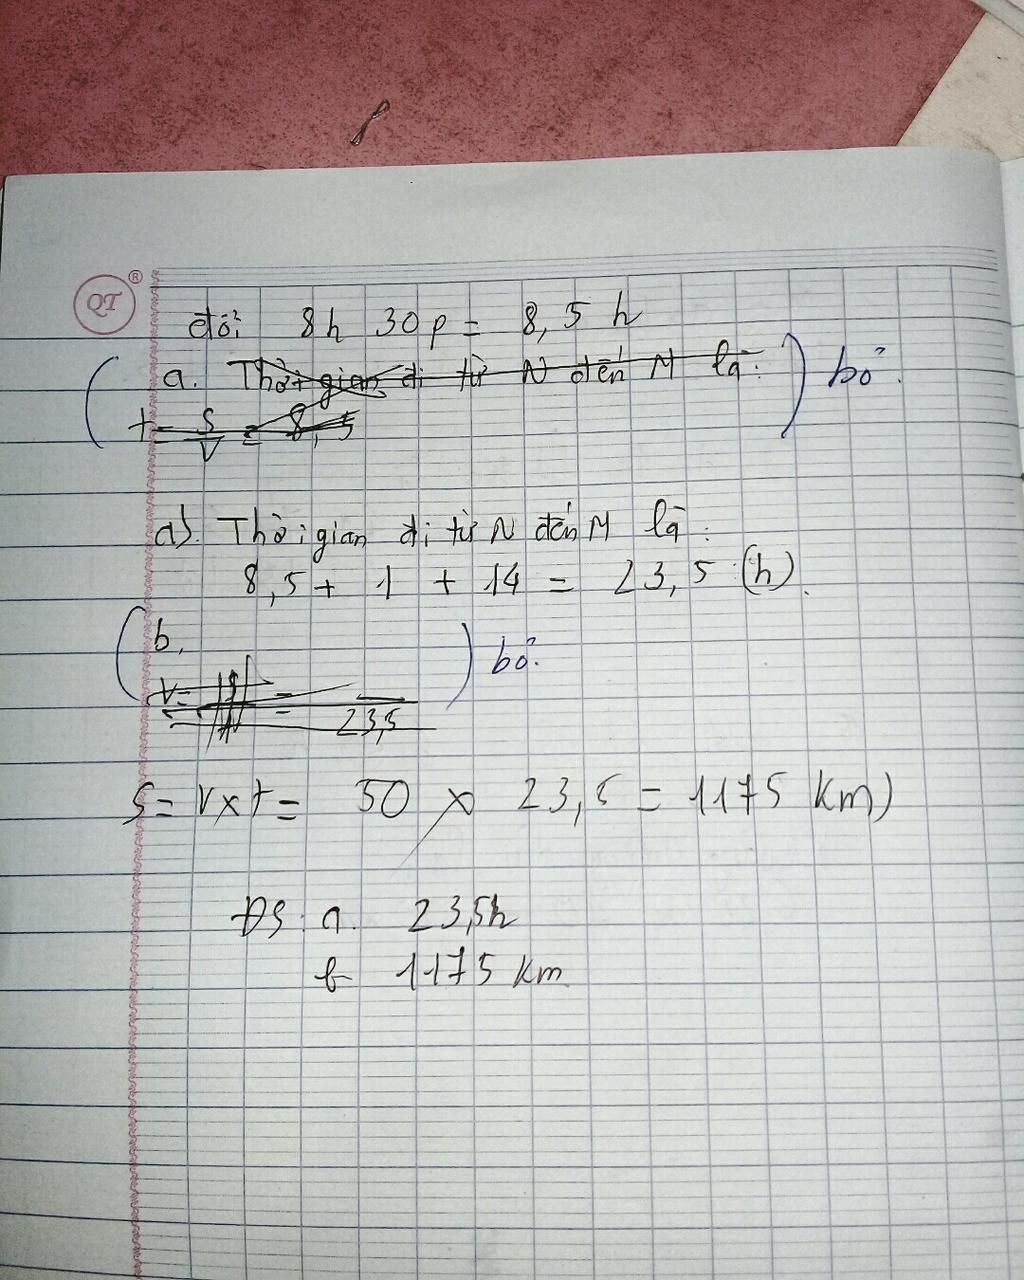 QT ®
đổi 8h 30p = 8,5 h
a. Thời gian đi từ N đến M là: bỏ.
t = S/V = 8,5
a). Thời gian đi từ N đến M là:
8,5 + 1 + 14 = 23,5 (h).
b, bỏ.
V = =
= 23,5
S = V x t = 50 x 23,5 = 1175 km)
ĐS: a. 23,5h
b 1175 km